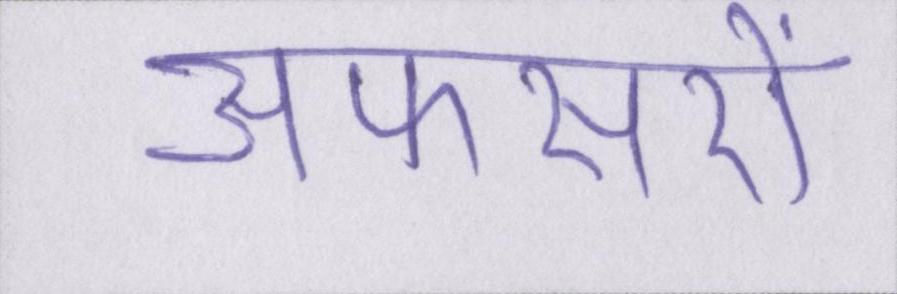 अफसरों